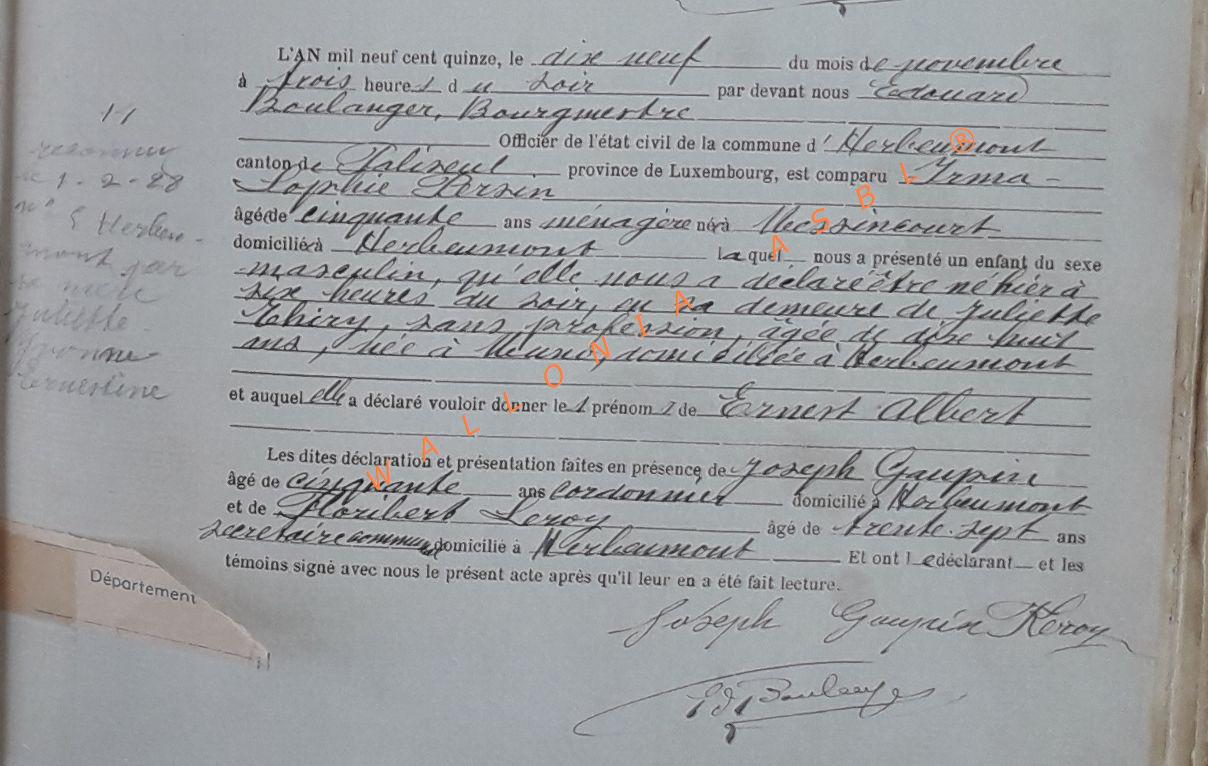 L'AN mil neuf cent quinze, le dixe neuf du mois de novembre
à trois heures du soir par devant nous Edouard
Boulanger, Bourgmestre
Officier de l'état civil de la commune d' Herbeumont
canton de Paliseul province de Luxembourg, est comparu Irma -
Sophie Persin
âgé de cinquante ans ménagère né à Messincourt
domicilié à Herbeumont laquel nous a présenté un enfant du sexe
masculin, qu'elle nous a déclaré être né hier à
six heures du soir, en sa demeure de Juliette
Thiry, sans profession, âgée de dixe huit
ans, née à domiciliée à Herbeumont
et auquel elle a déclaré vouloir donner les prénoms de Ernest Albert
Les dites déclaration et présentation faites en présence de Joseph Gaupin
âgé de cinquante ans cordonnier domicilié à Herbeumont
et de Floribert Leroy âgé de trente-sept ans
secrétaire communal domicilié à Herbeumont Et ont le déclarant et les
témoins signé avec nous le présent acte après qu'il leur en a été fait lecture.
Joseph Gaupin Fleroy
Ed Boulanger
11
reconnu
le 1-2-28
n° 5 Herbeu-
mont par
sa mère
Juliette
Yvonne
Ernestine
Département
WALLONIA ASBL ®